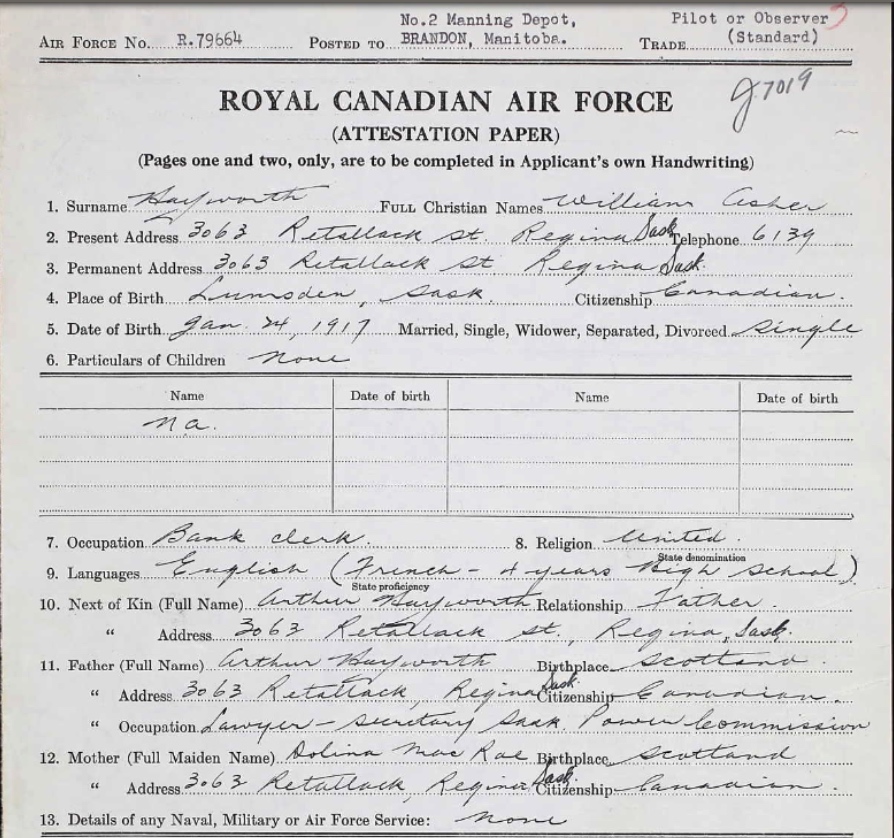 No.2 Manning Depot, Pilot or Observer
AIR FORCE No. R.79664 POSTED TO BRANDON, Manitoba. TRADE (Standard)
J.7019
ROYAL CANADIAN AIR FORCE
(ATTESTATION PAPER)
(Pages one and two, only, are to be completed in Applicant's own Handwriting)
1. Surname Hayworth FULL Christian Names William Asher
2. Present Address 3063 Retallack St. Regina Sask Telephone 6139
3. Permanent Address 3063 Retallack St Regina Sask.
4. Place of Birth Lumsden, Sask. Citizenship Canadian.
5. Date of Birth Jan. 24, 1917 Married, Single, Widower, Separated, Divorced Single
6. Particulars of Children None
Name Date of birth Name Date of birth
na.
7. Occupation Bank clerk. 8. Religion United.
State denomination
9. Languages English (French - 4 years High School)
State proficiency
10. Next of Kin (Full Name) Arthur Hayworth Relationship Father.
" Address 3063 Retallack St., Regina, Sask.
11. Father (Full Name) Arthur Hayworth Birthplace Scotland.
" Address 3063 Retallack, Regina Sask. Citizenship Canadian.
" Occupation Lawyer - Secretary Sask. Power Commission
12. Mother (Full Maiden Name) Dolina MacRae Birthplace Scotland
" Address 3063 Retallack, Regina Sask. Citizenship Canadian.
13. Details of any Naval, Military or Air Force Service: None